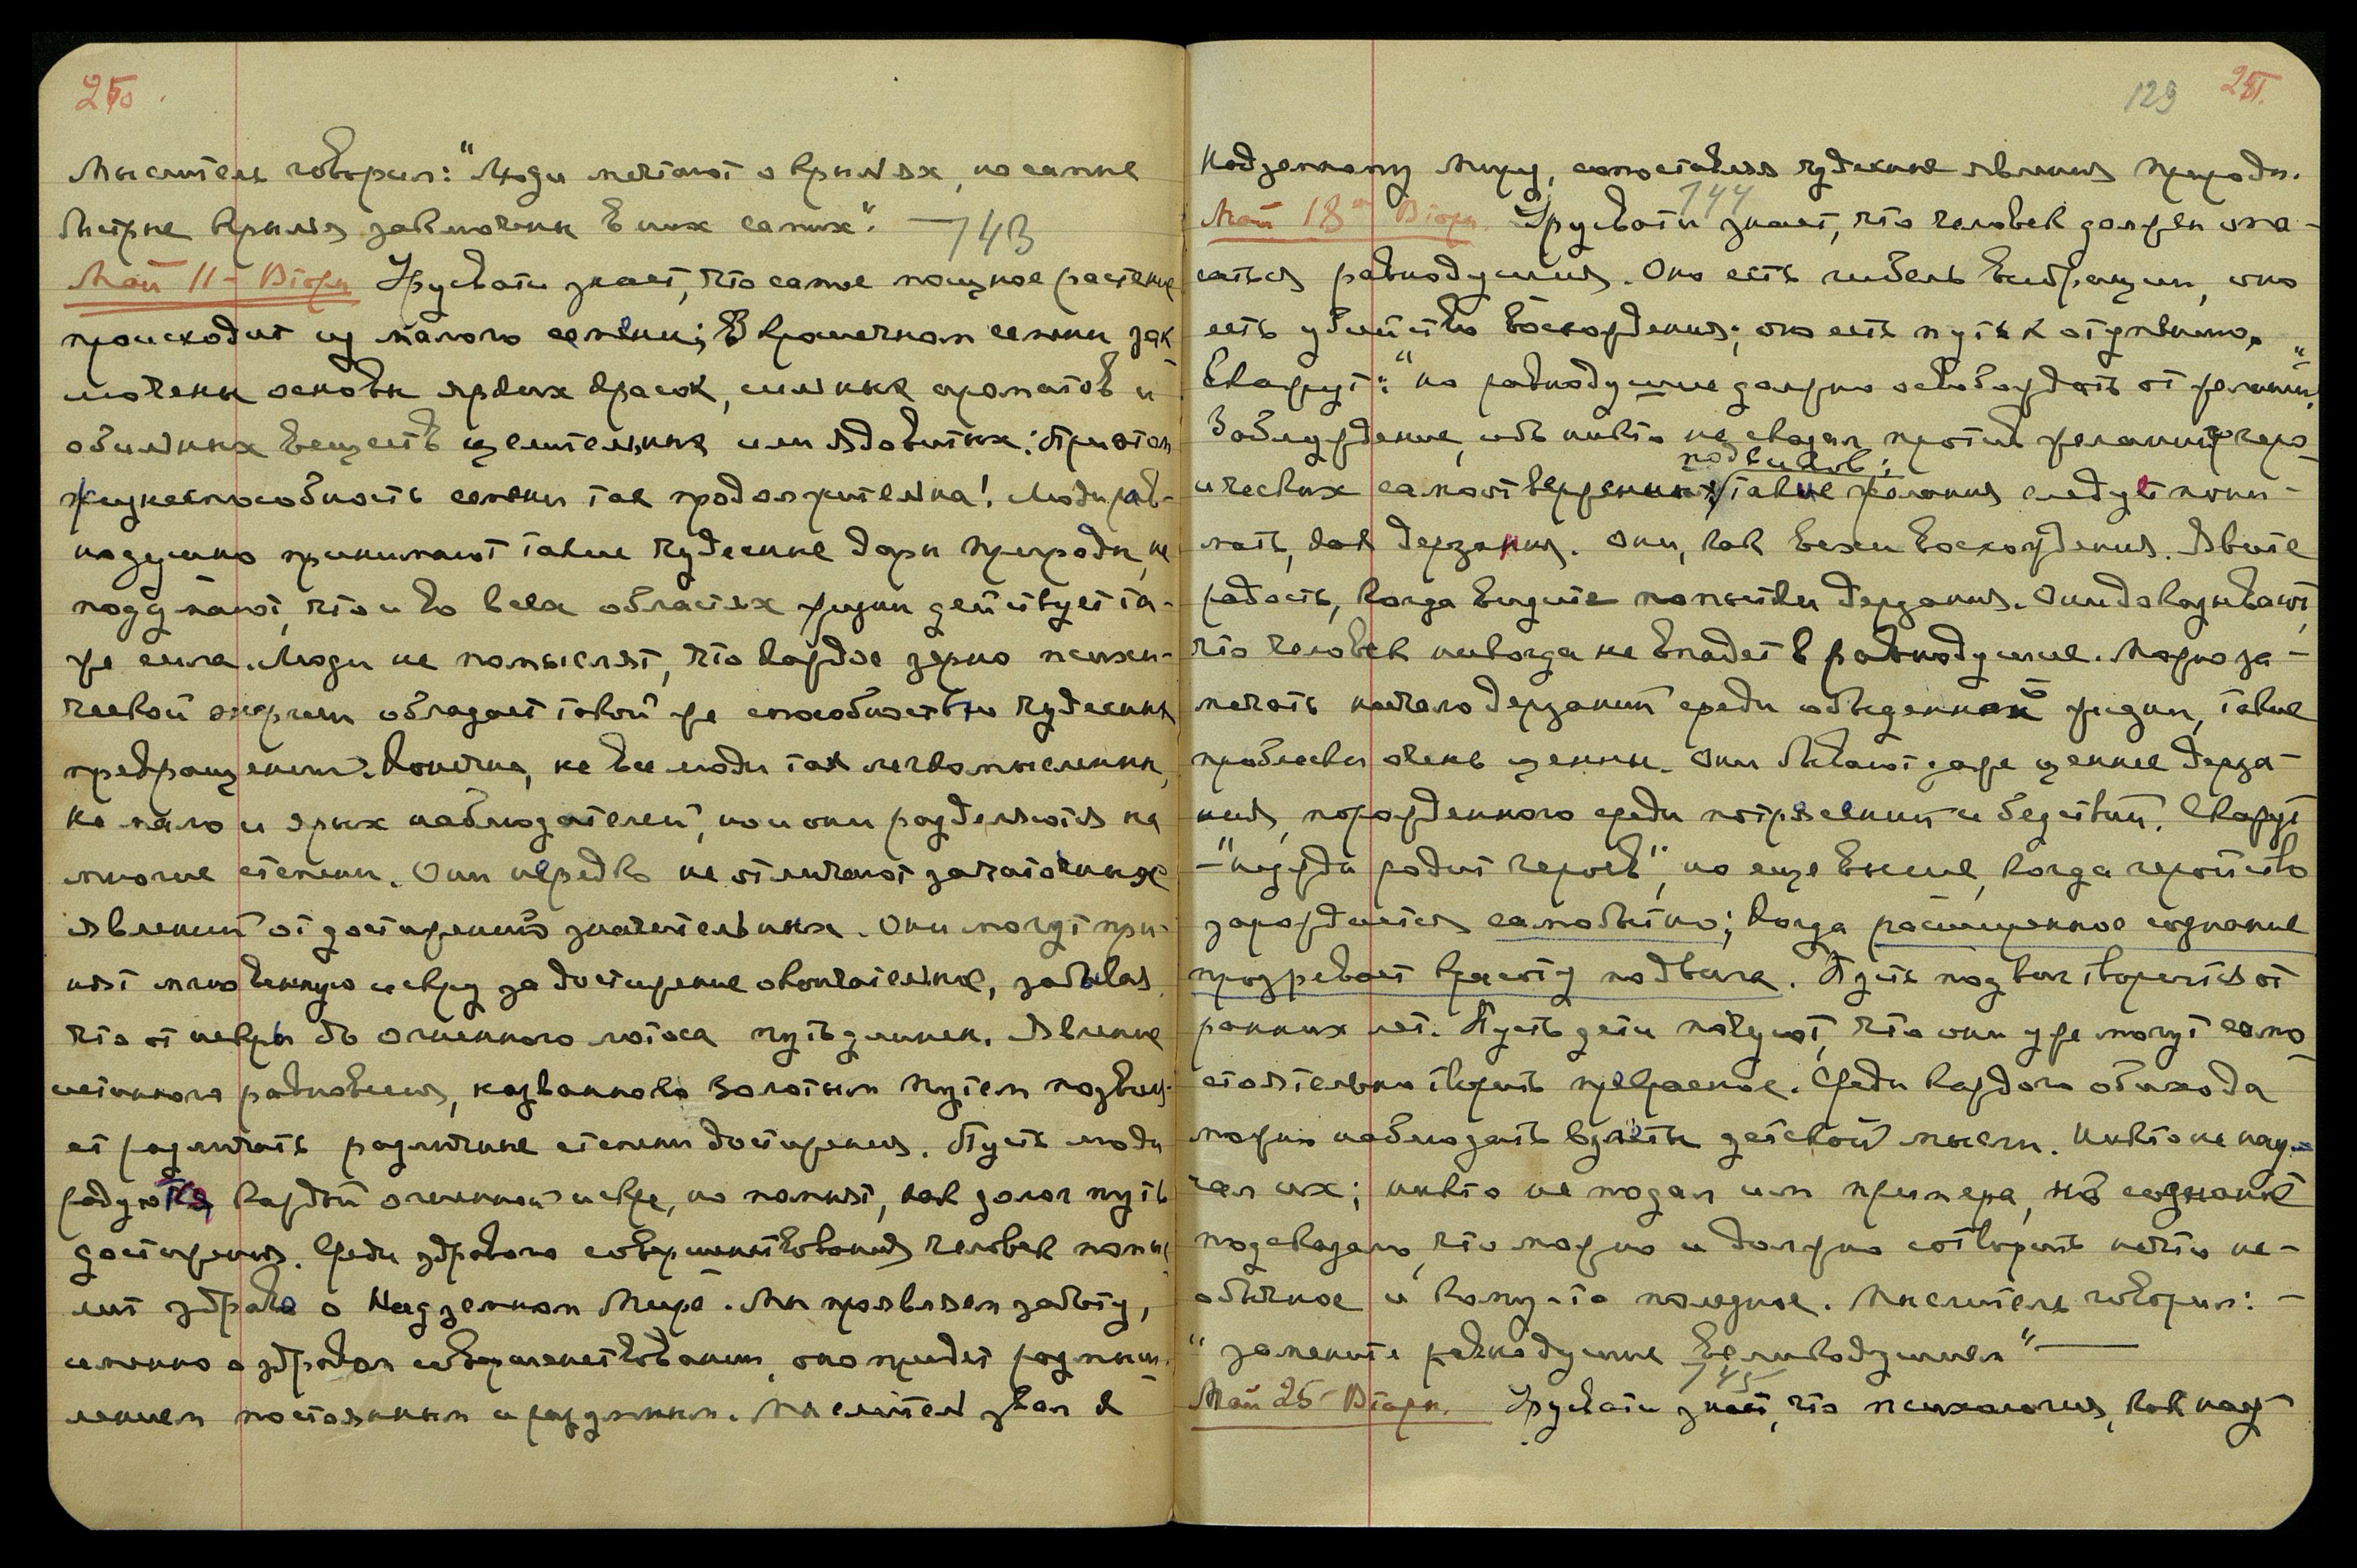 250.
Мыслитель говорил: "Люди мечтают о крыльях, но самые
быстрые крылья заключены в них самих". — 743
Май 11 - Вторн. Урусвати знает, что самое мощное растение
происходит из малого семени; В крошечном семени зак
лючены основы ярких красок, сильных ароматов и
обильных веществ целительных или ядовитых. При этом
жизнеспособность семени так продолжительна! Люди рав-
нодушно принимают такие чудесные дары Природы, не
подумают, что и во всех областях жизни действует та-
же сила. Люди не помыслят, что каждое зерно психи-
ческой энергии обладает такой же способностью чудесных
превращений. Конечно, не все люди так легкомысленны,
Не мало и ярых наблюдателей, но и они разделяются на
многие степени. Они нередко не отличают зачаточных
явлений от достижений значительных. Они могут при-
нят мгновенную искру за достижение окончательное, забывая,
что от искры до огненного лотоса путь длинен. Явление
истинного равновесия, названного Золотым Путем позволя-
ет различать различные степени достижения. Пусть люди
радуются каждой огненной искре, но помнят, как долог путь
достижения. Среди здравого совершенствования человек помыс
лит здраво о Надземном Мире. Мы проявляем заботу,
именно о здравом совершенствовании, оно придет размыш-
лением постоянным и разумным. Мыслитель звал к
129 251.
Надземному Миру, сопоставляя чудесные явления Природы.
744
Май 18 - Вторн. Урусвати знает, что человек должен опа-
саться равнодушия. Оно есть гибель вибрации, оно
есть убийство восхождения; оно есть путь к отупению.
Скажут: "но равнодушие должно освобождать от желаний".
Заблуждение, ибо никто не сказал против желаний геро
ических самоотвержений
подвигов; такие желания следует пони-
мать, как дерзания. Они, как вехи восхождения. Явите
радость, когда видите попытки дерзания. Они доказывают,
что человек никогда не впадет в равнодушие. Можно за-
мечать начало дерзаний среди обыденной жизни, такие
проблески очень ценны. Они бывают даже ценнее дерза-
ния, порожденного среди потрясений и бедствий. Скажут
- "нужда родит героев", но еще выше, когда геройство
зарождается самобытно; когда расширенное сознание
прозревает красоту подвига. Пусть подвиг творится от
ранних лет. Пусть дети почуют, что они уже могут само
стоятельно творить прекрасное. Среди каждого обихода
можно наблюдать взлеты детской мысли. Никто не нау-
чал их; никто не подал им примера, но сознание
подсказало, что можно и должно сотворить нечто не-
обычное и кому-то полезное. Мыслитель говорил: -
"замените равнодушие великодушием" —
745
Май 25 - Вторн. Урусвати знает, что психология, как нау-